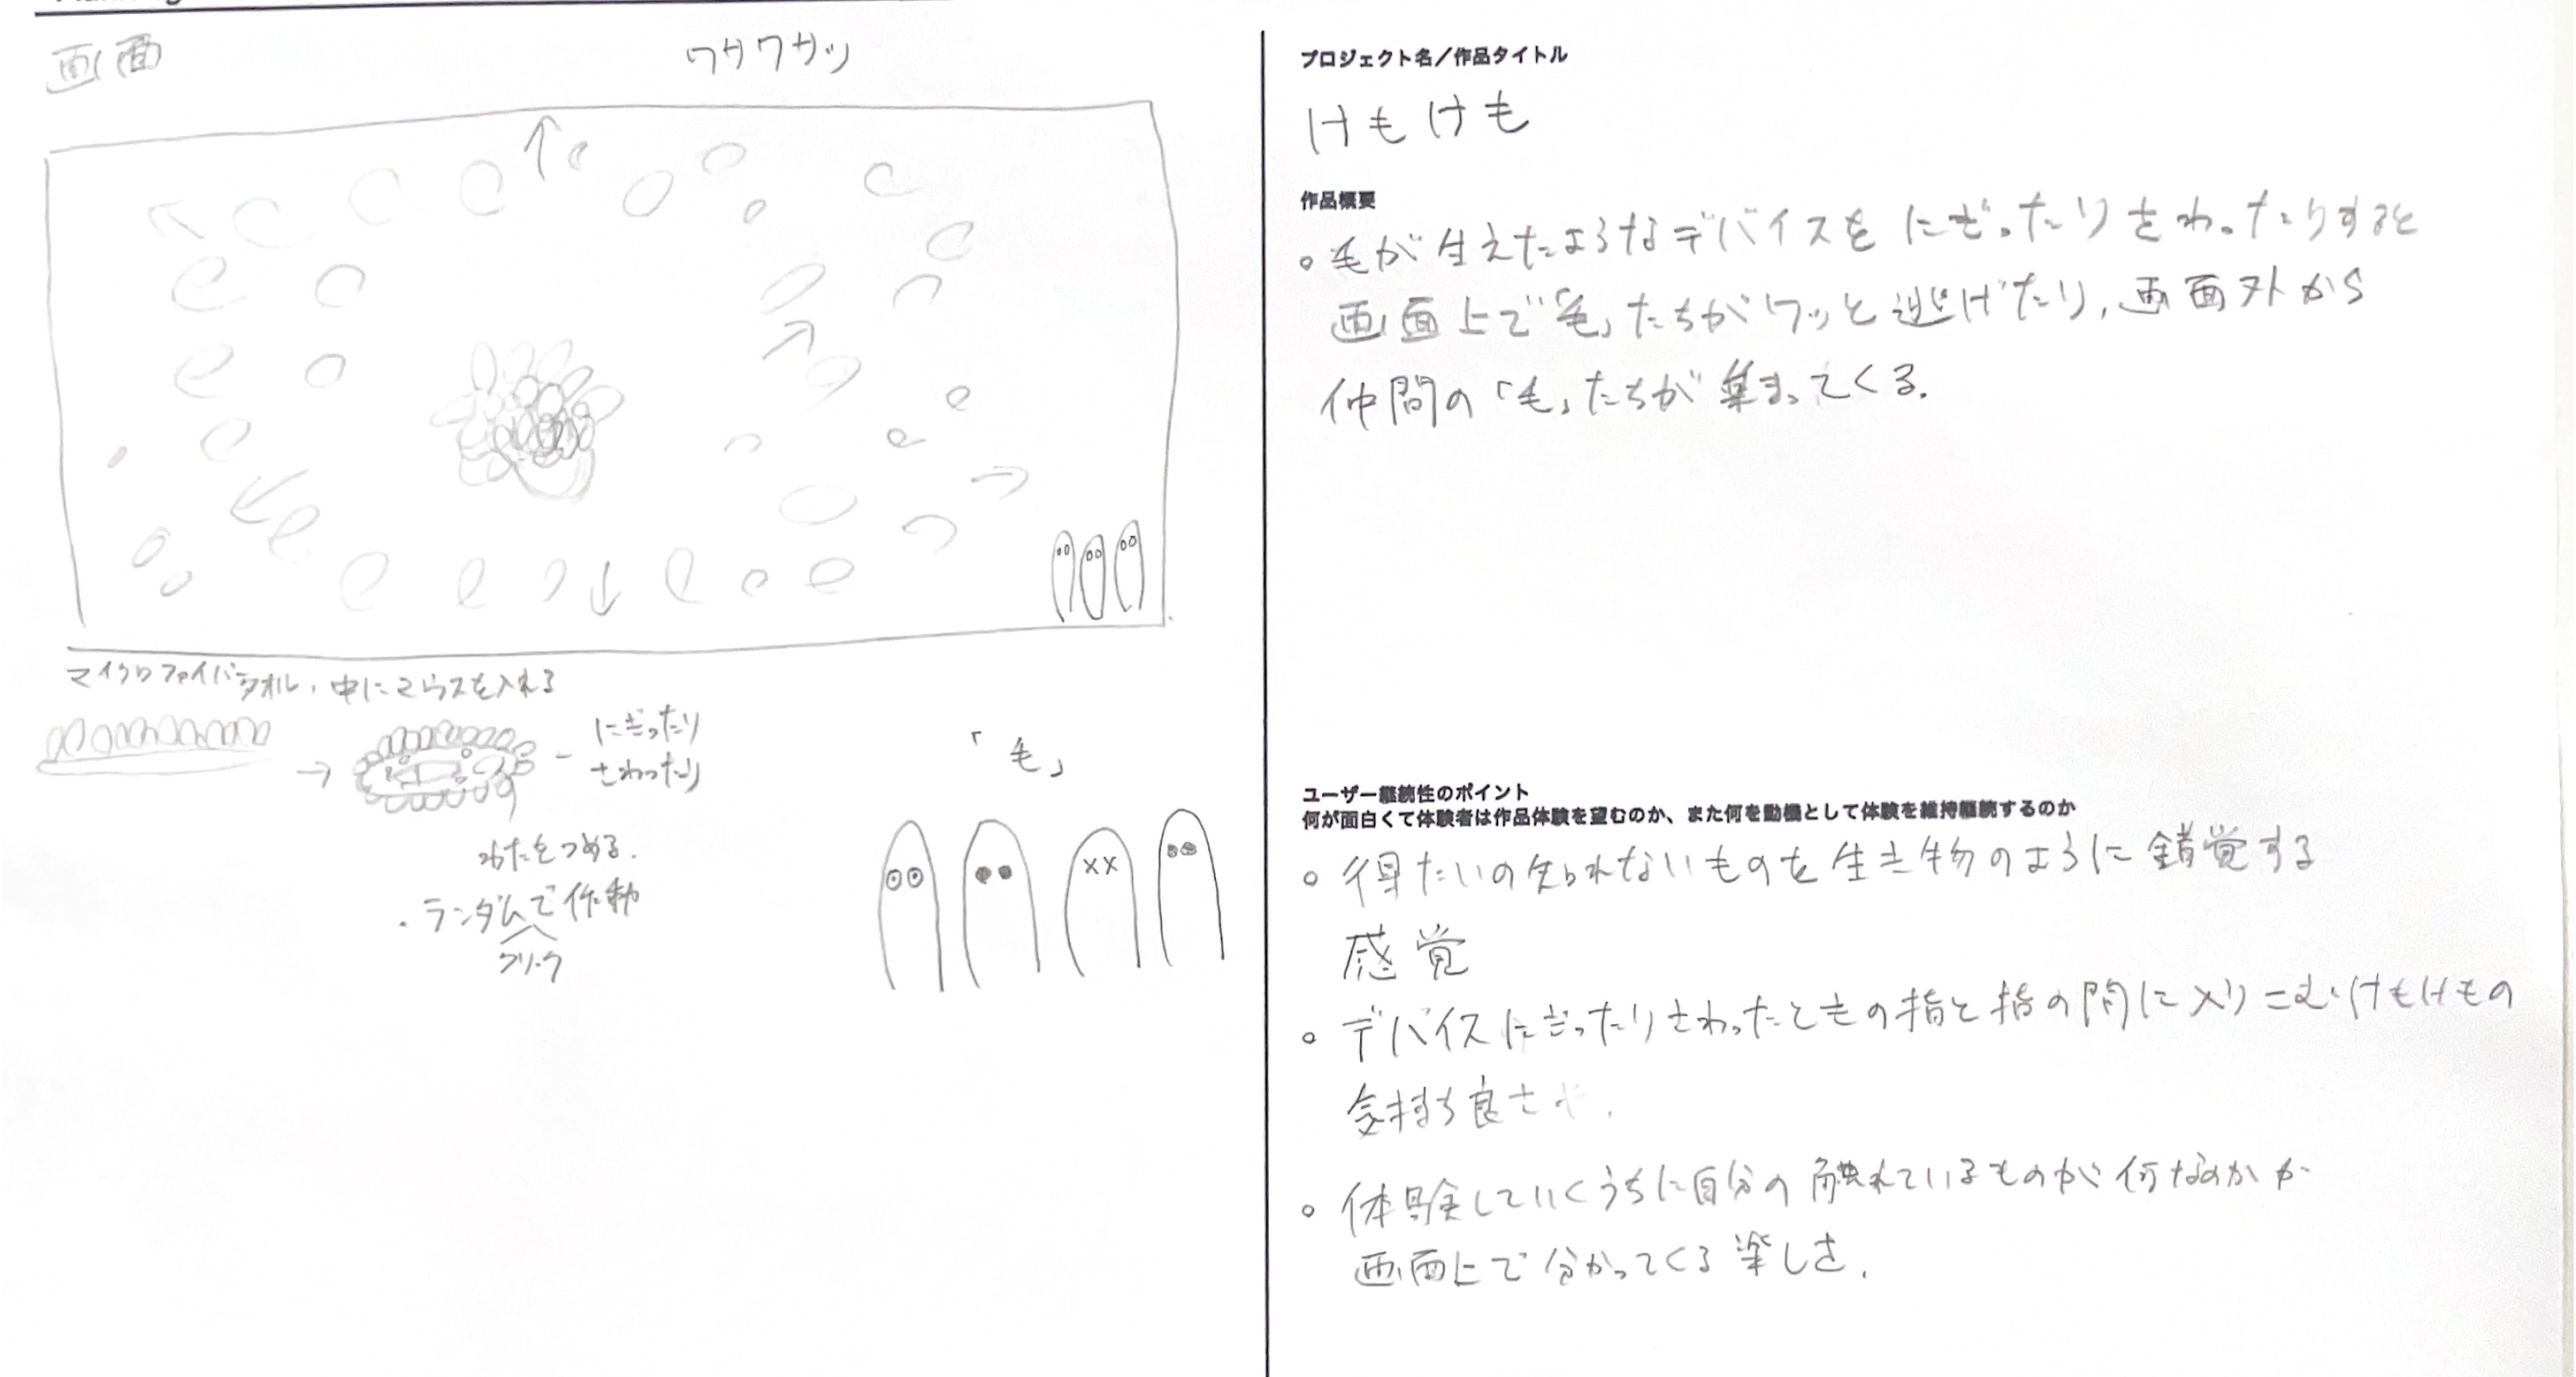 画面
ワサワサッ
マイクロファイバータオル、中にマウスを入れる
にぎったり
さわったり
わたをつめる.
・ランダムで作動
クリック
「毛」
プロジェクト名／作品タイトル
けもけも
作品概要
○毛が生えたようなデバイスをにぎったりさわったりすると
画面上で「毛」たちがワッと逃げたり,画面外から
仲間の「毛」たちが集まってくる.
ユーザー継続性のポイント
何が面白くて体験者は作品体験を望むのか、また何を動機として体験を維持継続するのか
○得たいの知られないものを生き物のように錯覚する
感覚
○デバイスにぎったりさわったときの指と指の間に入りこむけもけもの
気持ち良さや.
○体験していくうちに自分の触れているものが何なのかが
画面上で分かってくる楽しさ.